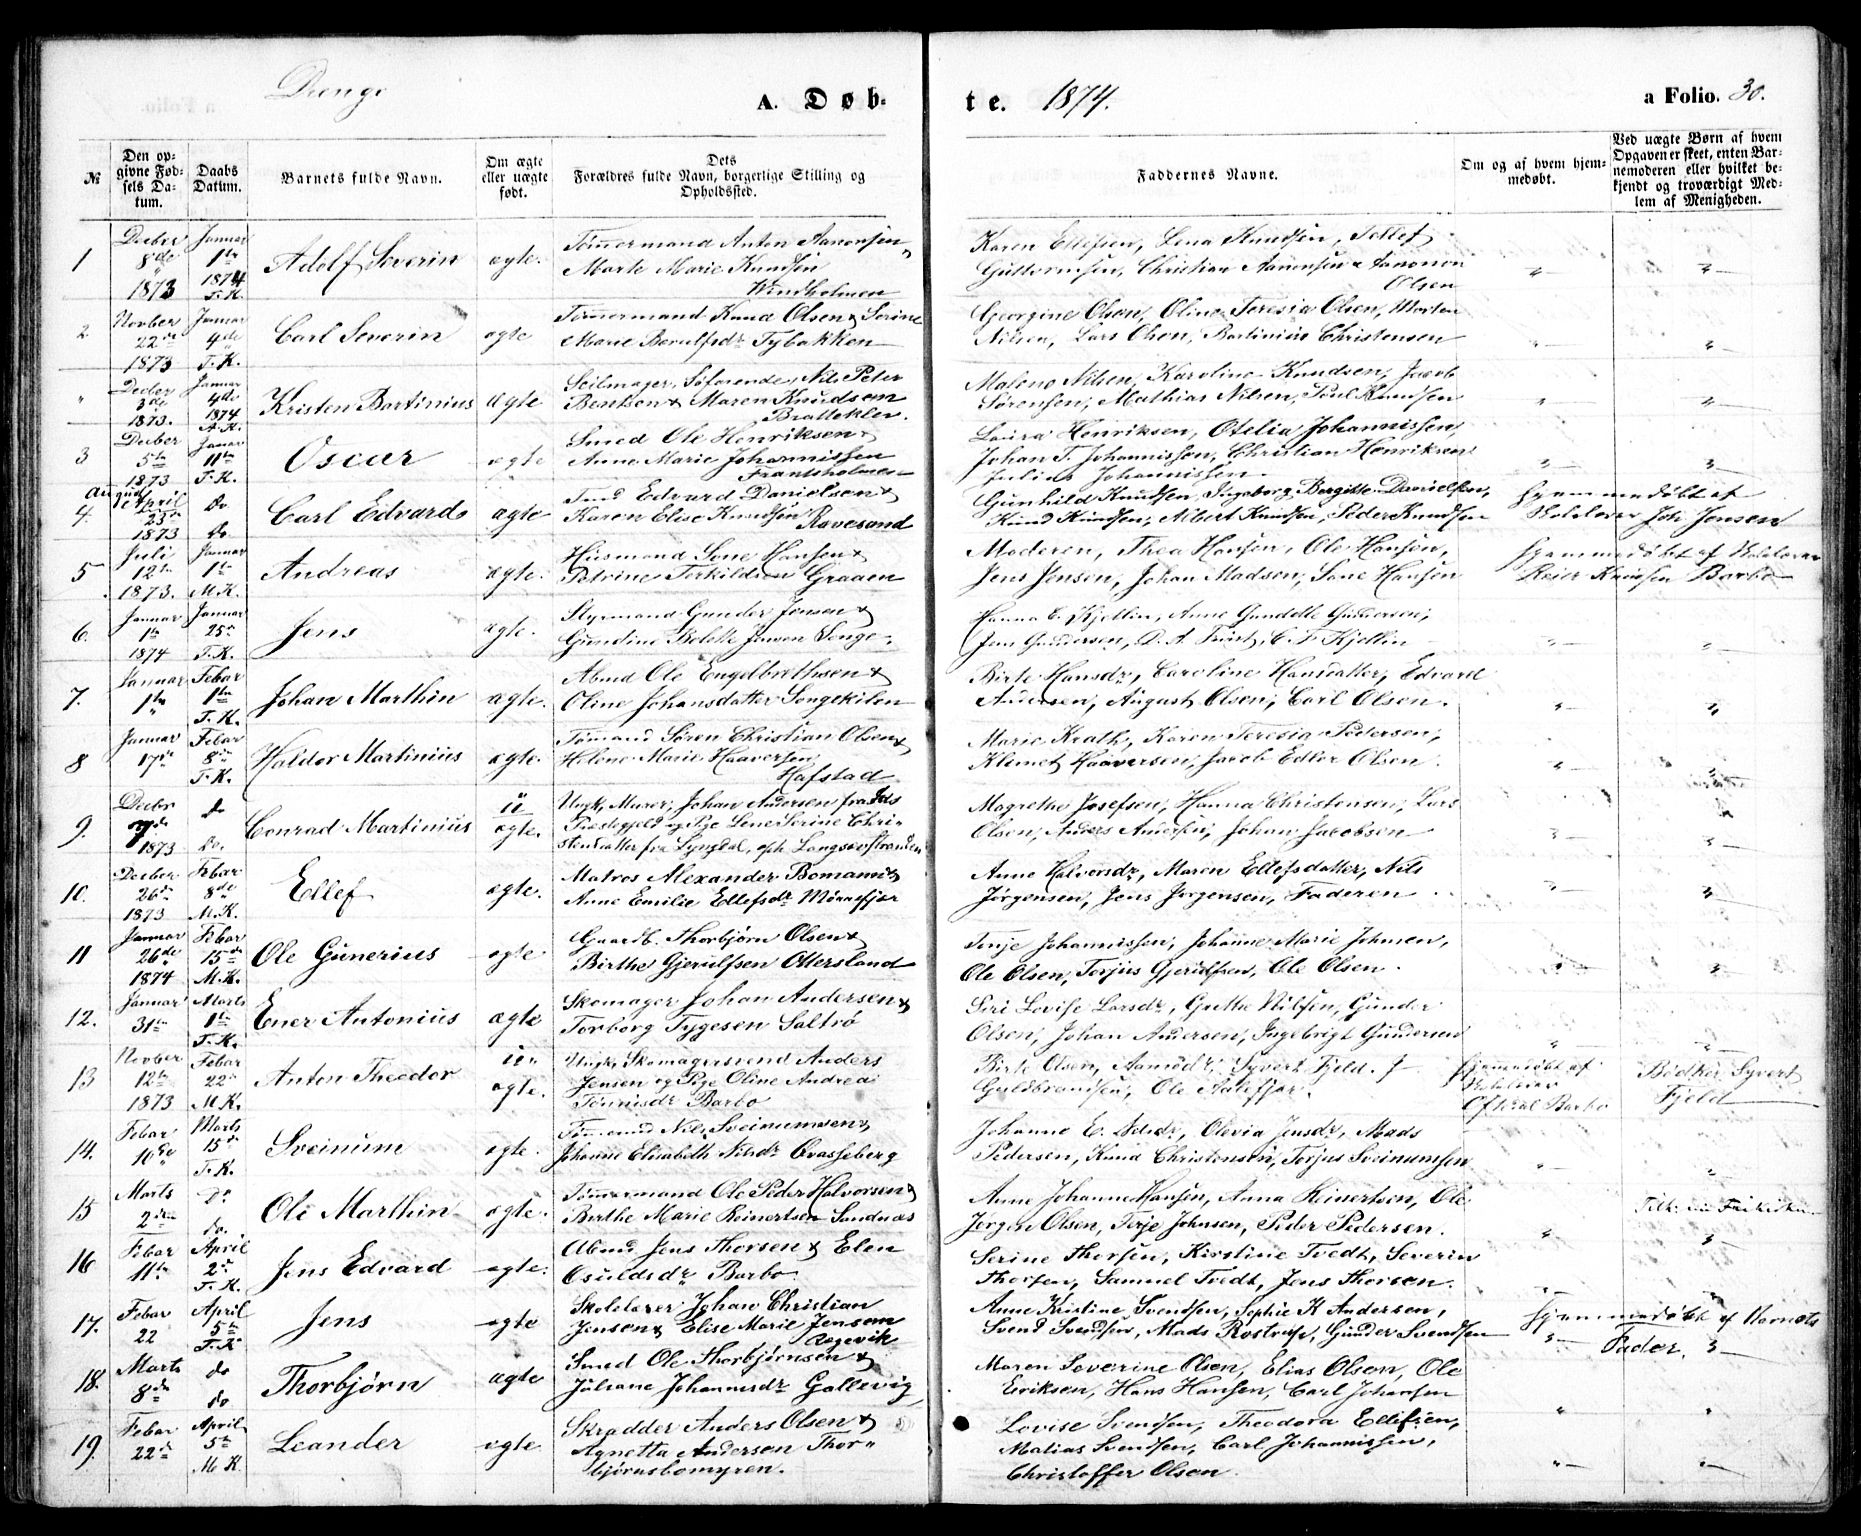 Drenge
A. Døb-
te. 1874.
a Folio. 30.
№
Den op-
givne Fød-
sels Da-
tum.
Daabs
Datum.
Barnets fulde Navn.
Om ægte
eller uægte
født.
Dets
Forældres fulde Navn, borgerlige Stilling og
Opholdssted.
Faddernes Navne.
Om og af hvem hjem-
medøbt.
Ved uægte Børn af hvem
Opgaven er skeet, enten Bar-
nemoderen eller hvilket be-
kjendt og troværdigt Med-
lem af Menigheden.
1
Decber 8de 1873
Januar 1ste 1874 T.K.
Adolf Severin
ægte.
Tømmermand Anton Aanonsen
Marte Marie Knudsen
Windholmen
Karen Ellefsen, Lena Knudsen, Tellef
Guttormsen, Christian Aanonsen & Aanonon
Olsen
2.
Novber 22de 1873
Januar 4de T.K.
Carl Severin
ægte
Tømmermand Knud Olsen & Serine
Marie Berulfsdr Tybakken
Georgine Olsen, Oline Teresia Olsen, Morten
Nilsen, Lars Olsen, Bartinius Christensen
"
Decber 3de 1873.
Januar 4de 1874 A.K.
Kristen Bartinius
ægte
Seilmager, Søfarende, Nils Peter
Bentsen & Maren Knudsen
Bratteklev.
Malene Nilsen, Karoline Knudsen, Jacob
Sørensen, Mathias Nilsen, Poul Knudsen
3
Decber 5te 1873
Januar 11te T.K.
Oscar
ægte
Smed Ole Henriksen &
Anne Marie Johannissen
Frantsholmen
Laura Henriksen, Otelia Johannissen,
Johan T. Johannissen, Christian Henriksen
Julius Johannissen.
4.
August
April 23de 1873
do do
Carl Edvard
ægte
Edvard Danielsen &
Karen Elise Knudsen Ravesand
Gunhild Knudsen, Ingeborg Bergitte Danielsen,
Knud Knudsen, Albert Knudsen, Peder Knudsen
Hjemmedøbt af
Skolelærer Joh Jensen
5
Juli 12te 1873.
Januar 1ste M.K.
Andreas
ægte.
Husmand Sone Hansen &
Petrine Terkildsen Graaen
Moderen, Thea Hansen, Ole Hansen,
Jens Jensen, Johan Madsen, Sone Hansen
Hjemmedøbt af Skolelærer
Reier Knudsen Barbo
6.
Januar 1ste 1874
Januar 25de T.K.
Jens
ægte.
Styrmand Gunder Jensen &
Gundine Bolette Jensen Songe.
Hanna C. Kjellin, Anne Gundelle Gundersen,
Jens Gundersen, D. A. Furst, C. F. Kjellin
7.
Januar 1ste
Febar 1ste T.K.
Johan Marthin
ægte.
Abmd Ole Engelbrethsen &
Oline Johansdatter Songekilen
Birte Hansdr, Caroline Hansdatter, Edvard
Andersen, August Olsen, Carl Olsen.
8
Januar 17de
Febar 8de T.K.
Haldor Martinius
ægte.
Tømmd Søren Christian Olsen &
Helene Marie Haaversen
Hafstad
Marie Krath, Karen Teresia Pedersen,
Klemet Haaversen, Jacob Edler Olsen.
9.
Decbr 7de 1873
do do.
Conrad Martinius
u ægte.
Ungk. Murer, Johan Andersen fra
Præstegjeld og Pige Lene Serine Chri-
stensdatter fra Lyngdal, oph. Langsævstranden
Magrethe Josefsen, Hanna Christensen, Lars
Olsen, Anders Andersen, Johan Jacobsen
10.
Decber 26de 1873
Febar 8de M.K.
Ellef
ægte.
Matros Alexander Bomann &
Anne Emilie Ellefsdr
Anne Halvorsdr, Maren Ellefsdatter, Nils
Jørgensen, Jens Jørgensen, Faderen
11
Januar 26de 1874
Febar 15de M.K.
Ole Gunerius
ægte
Gaardb. Thorbjørn Olsen &
Birthe Gjerulfsen Ottersland
Terje Johannissen, Johanne Marie Johnsen,
Ole Olsen, Torjus Gjerulfsen, Ole Olsen.
12.
Januar 31te
Marts 1ste T.K.
Ener Antonius
ægte
Skomager Johan Andersen &
Torborg Tygesen Saltrø
Siri Lovise Larsdr, Grethe Nilsen, Gunder
Olsen, Johan Andersen, Ingebrigt Gundersen
13
Novber 12te 1873
Febar 22de M.K.
Anton Theodor
u- ægte.
Ungk. Skomagersvend Anders
Jensen og Pige Oline Andrea
Tønnisdr Barbo
Birte Olsen, Syvert Fjeld.
Guldbrandsen, Ole
Hjemmedøbt af
Skolelærer
Oftedal Barbo
Bødker Syvert
Fjeld
14.
Febar 10de
Marts 15de T.K.
Sveinum
ægte.
Tømmermd Nils Sveinumsen &
Johanne Elisabeth Nilsdr Qvasseberg
Johanne E. Nilsdr, Olevia Jensdr, Mads
Pedersen, Knud Christensen, Torjus Sveinumsen
15
Marts 2den
do do.
Ole Marthin
ægte.
Tømmermand Ole Peder Halvorsen &
Birthe Marie Reinertsen Sandnæs
Anne Johanne Hansen, Anna Reinertsen, Ole
Jørgen Olsen, Terje Johnsen, Peder Pedersen.
16
Febar 11te
April 2de T.K.
Jens Edvard
ægte.
Abmd Jens Thorsen & Elen
Osuldsdr Barbo
Serine Thorsen, Kirstine Tvedt, Severin
Thorsen, Samuel Tvedt, Jens Thorsen.
17.
Febar 22
April 5te T.K.
Jens
ægte
Skolelærer Johan Christian
Jensen & Elise Marie Jensen
Aagevik
Anne Kristine Svendsen, Sophie K Andersen,
Svend Svendsen, Mads Rostrup, Gunder Svendsen
Hjemmedøbt af Barnets
Fader.
18.
Marts 8de
do do
Thorbjørn
ægte
Smed Ole Thorbjørnsen &
Juliane Johannesdr Gallevig
Maren Severine Olsen, Elias Olsen, Ole
Eriksen, Hans Hansen, Carl Johansen
19.
Febar 22de
April 5te M.K.
Leander
ægte
Skrædder Anders Olsen &
Agnetta Andersen Thor-
bjørnsbomyren.
Lovise Svendsen, Theodora Ellefsen,
Matias Svendsen, Carl Johannissen,
Christoffer Olsen.